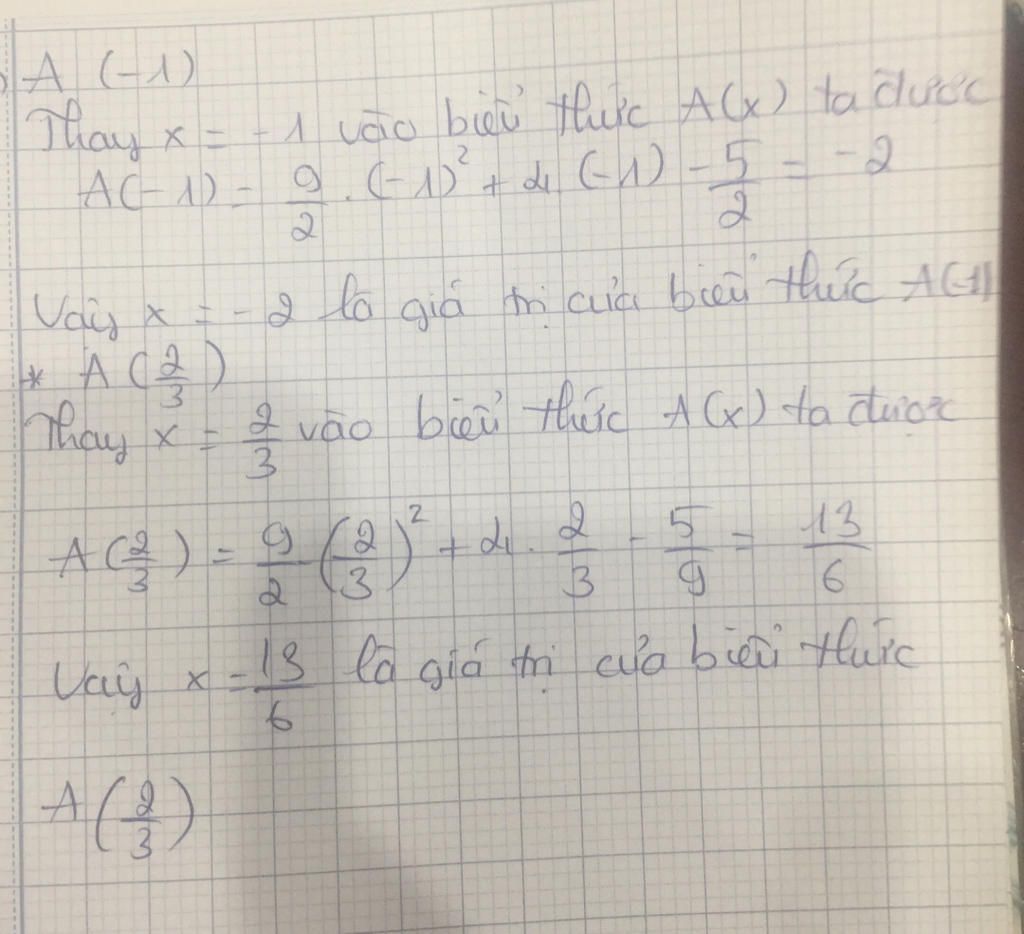 A (-1)
Thay x = -1 vào biểu thức A(x) ta được
A(-1) = 9/2 . (-1)² + 4 (-1) - 5/2 = -2
Vậy x = -2 là giá trị của biểu thức A(-1)
* A (2/3)
Thay x = 2/3 vào biểu thức A(x) ta được
A(2/3) = 9/2 (2/3)² + 4 . 2/3 - 5/9 = 13/6
Vậy x = 13/6 là giá trị của biểu thức
A (2/3)